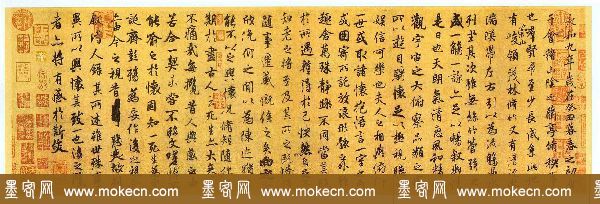 永和九年歲在癸丑暮春之初會
于會稽山陰之蘭亭脩稧事
也羣賢畢至少長咸集此地
有崇山峻領茂林脩竹又有清流激
湍暎帶左右引以為流觴曲水
列坐其次雖無絲竹管弦之
盛一觴一詠亦足以暢敘幽情
是日也天朗氣清惠風和暢仰
觀宇宙之大俯察品類之盛
所以遊目騁懷足以極視聽之
娛信可樂也夫人之相與俯仰
一世或取諸懷抱悟言一室之內
或因寄所託放浪形骸之外雖
趣舍萬殊靜躁不同當其欣
於所遇暫得於己怏然自足不
知老之將至及其所之既惓情
隨事遷感慨係之矣向之所
欣俛仰之閒以為陳迹猶不
能不以之興懷況脩短隨化終
期於盡古人云死生亦大矣豈
不痛哉每攬昔人興感之由
若合一契未嘗不臨文嗟悼不
能喻之於懷固知一死生為虛
誕齊彭殤為妄作後之視今
亦由今之視昔悲夫故列
敘時人錄其所述雖世殊事
異所以興懷其致一也後之攬
者亦將有感於斯文
墨客网 www.mokecn.com 墨客网 www.mokecn.com 墨客网 www.mokecn.com